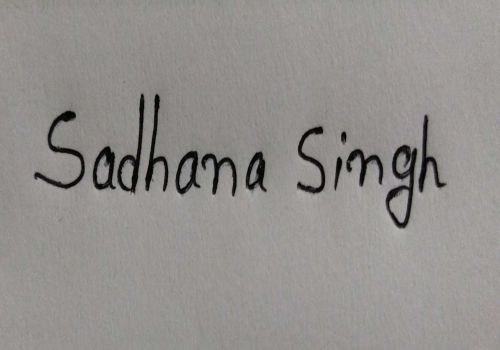 Sadhana Singh